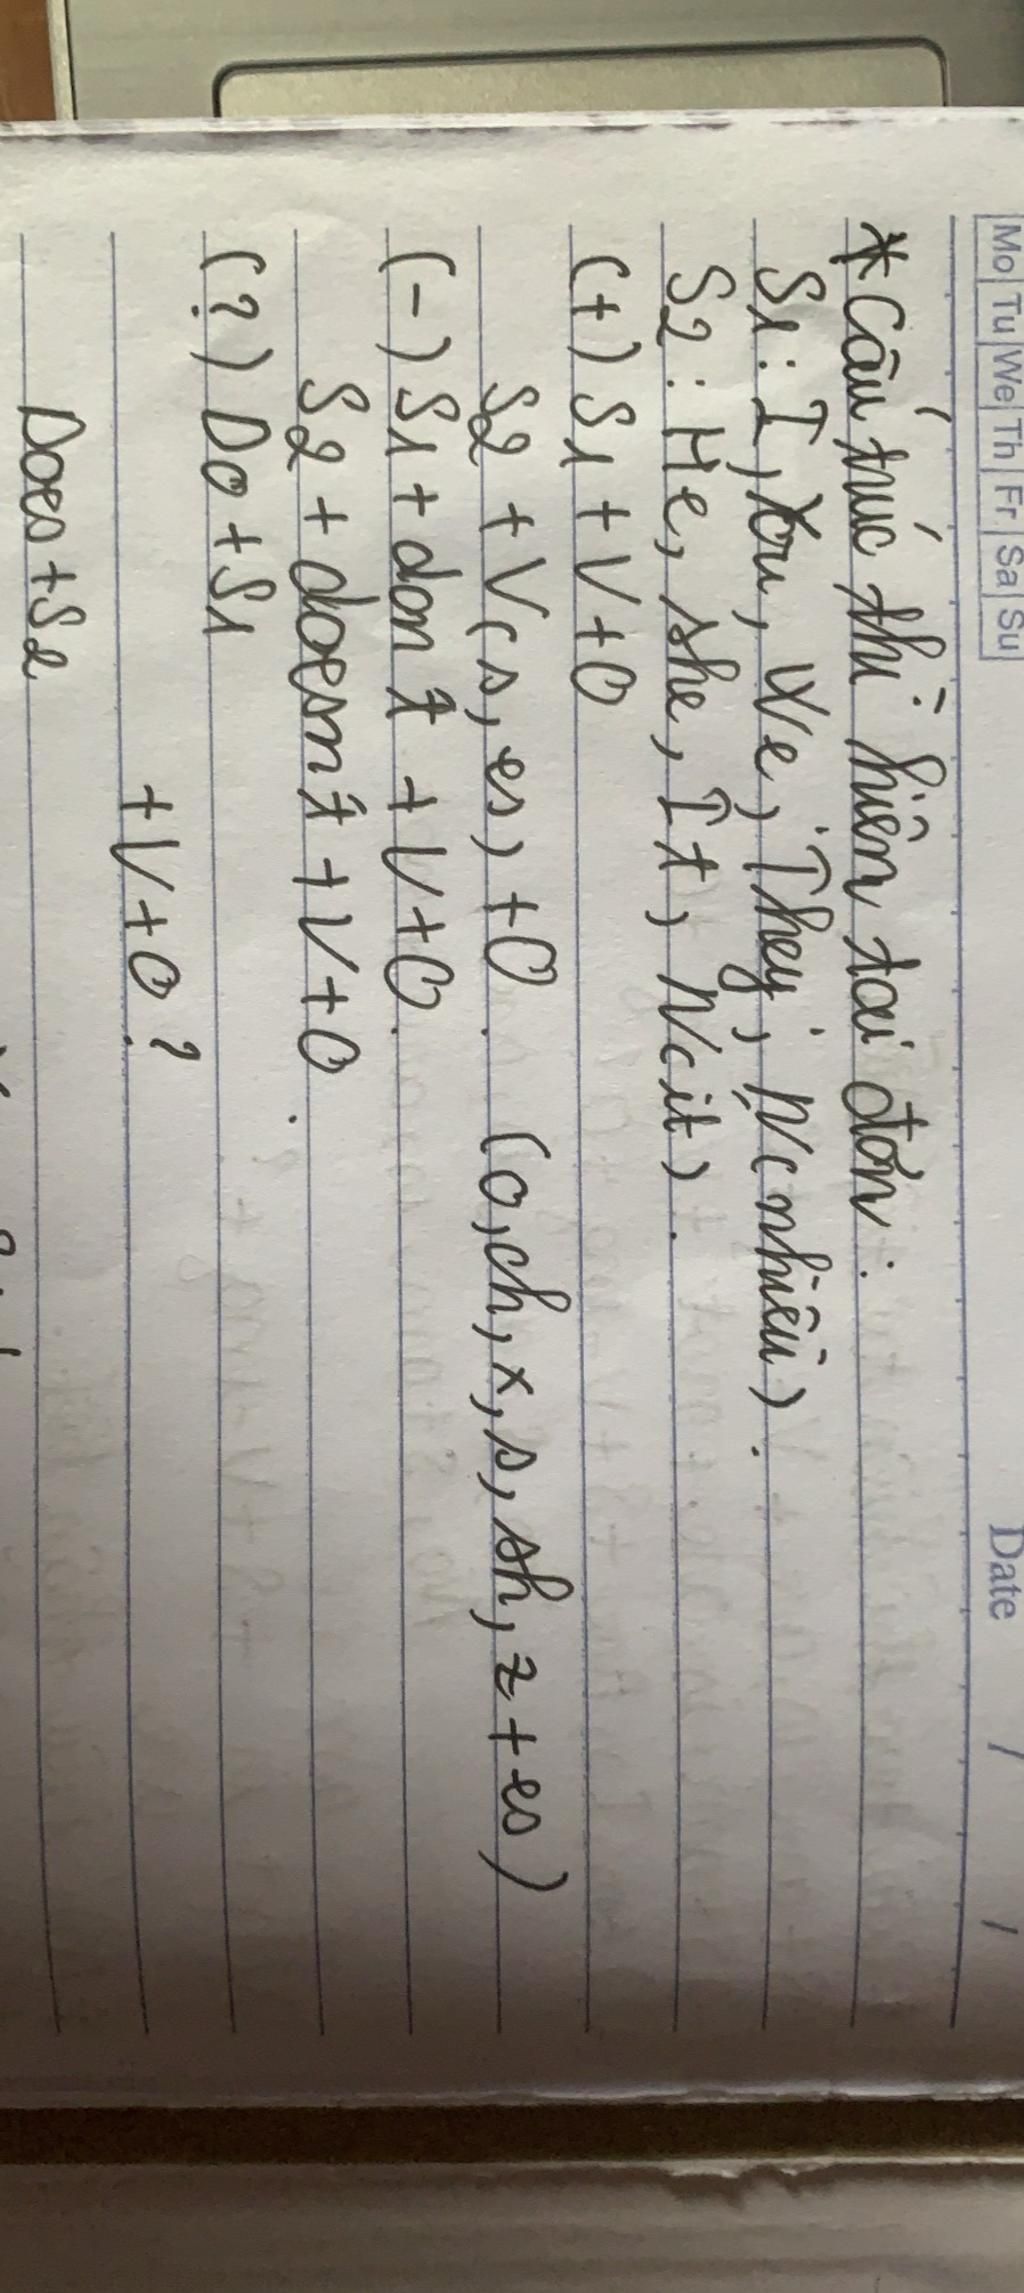 Mo Tu We Th Fr Sa Su Date / /
* Cấu trúc thì hiện tại đơn :
S1 : I, You, We, They, N(nhiều).
S2 : He, she, It, N(ít).
(+) S1 + V + O
S2 + V(s, es) + O. (o, ch, x, s, sh, z + es)
(-) S1 + don't + V + O.
S2 + doesn't + V + O.
(?) Do + S1
+ V + O ?
Does + S2